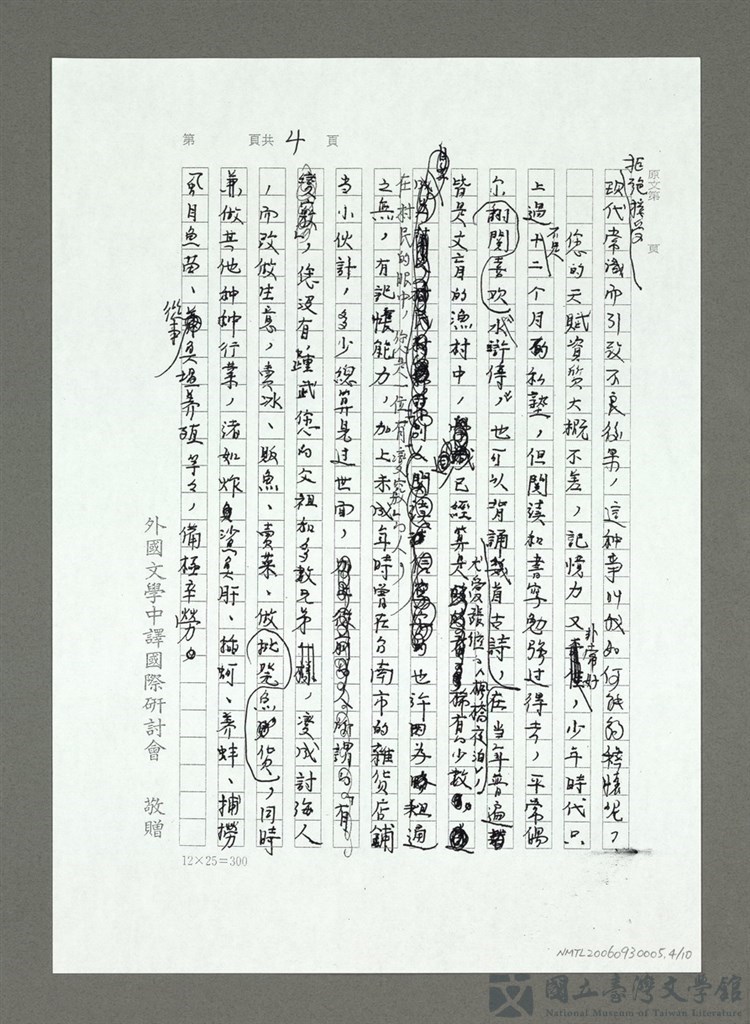 原文第　頁
拒絕接受
現代常識而引致不良後果，這种事叫我如何能夠釋懷呢，
您的天賦資質大概不差，記憶力又非常好，少年時代只
上過不足十二个月私塾，但閱讀和書寫勉強過得去，平常偶
尔喜欢翻閱水滸傳，也可以背誦幾首古詩，尤愛張継的楓橋夜泊，在当年普遍
皆是文盲的漁村中，已經算是稀有的少数。
在村民的眼中，您是一位有
也許因為粗通
之無，有記憶能力，加上未成年時曾在台南市的雜貨店鋪
当小伙計，多少總算是过世面，
您沒有踵武您的父祖和多数兄弟，变成討海人
，而改做生意，賣冰、販魚、賣菜、做批発魚貨，同時
兼做其他种种行業，諸如炸鯊魚肝、插蚵、养蚌、捕撈
虱目魚苗、從事魚塭养殖等々，備極辛勞。
第　頁共4頁
外國文學中譯國際研討會　敬贈
12×25=300
NMTL20060930005.4/10
國立臺灣文學館
National Museum of Taiwan Literature